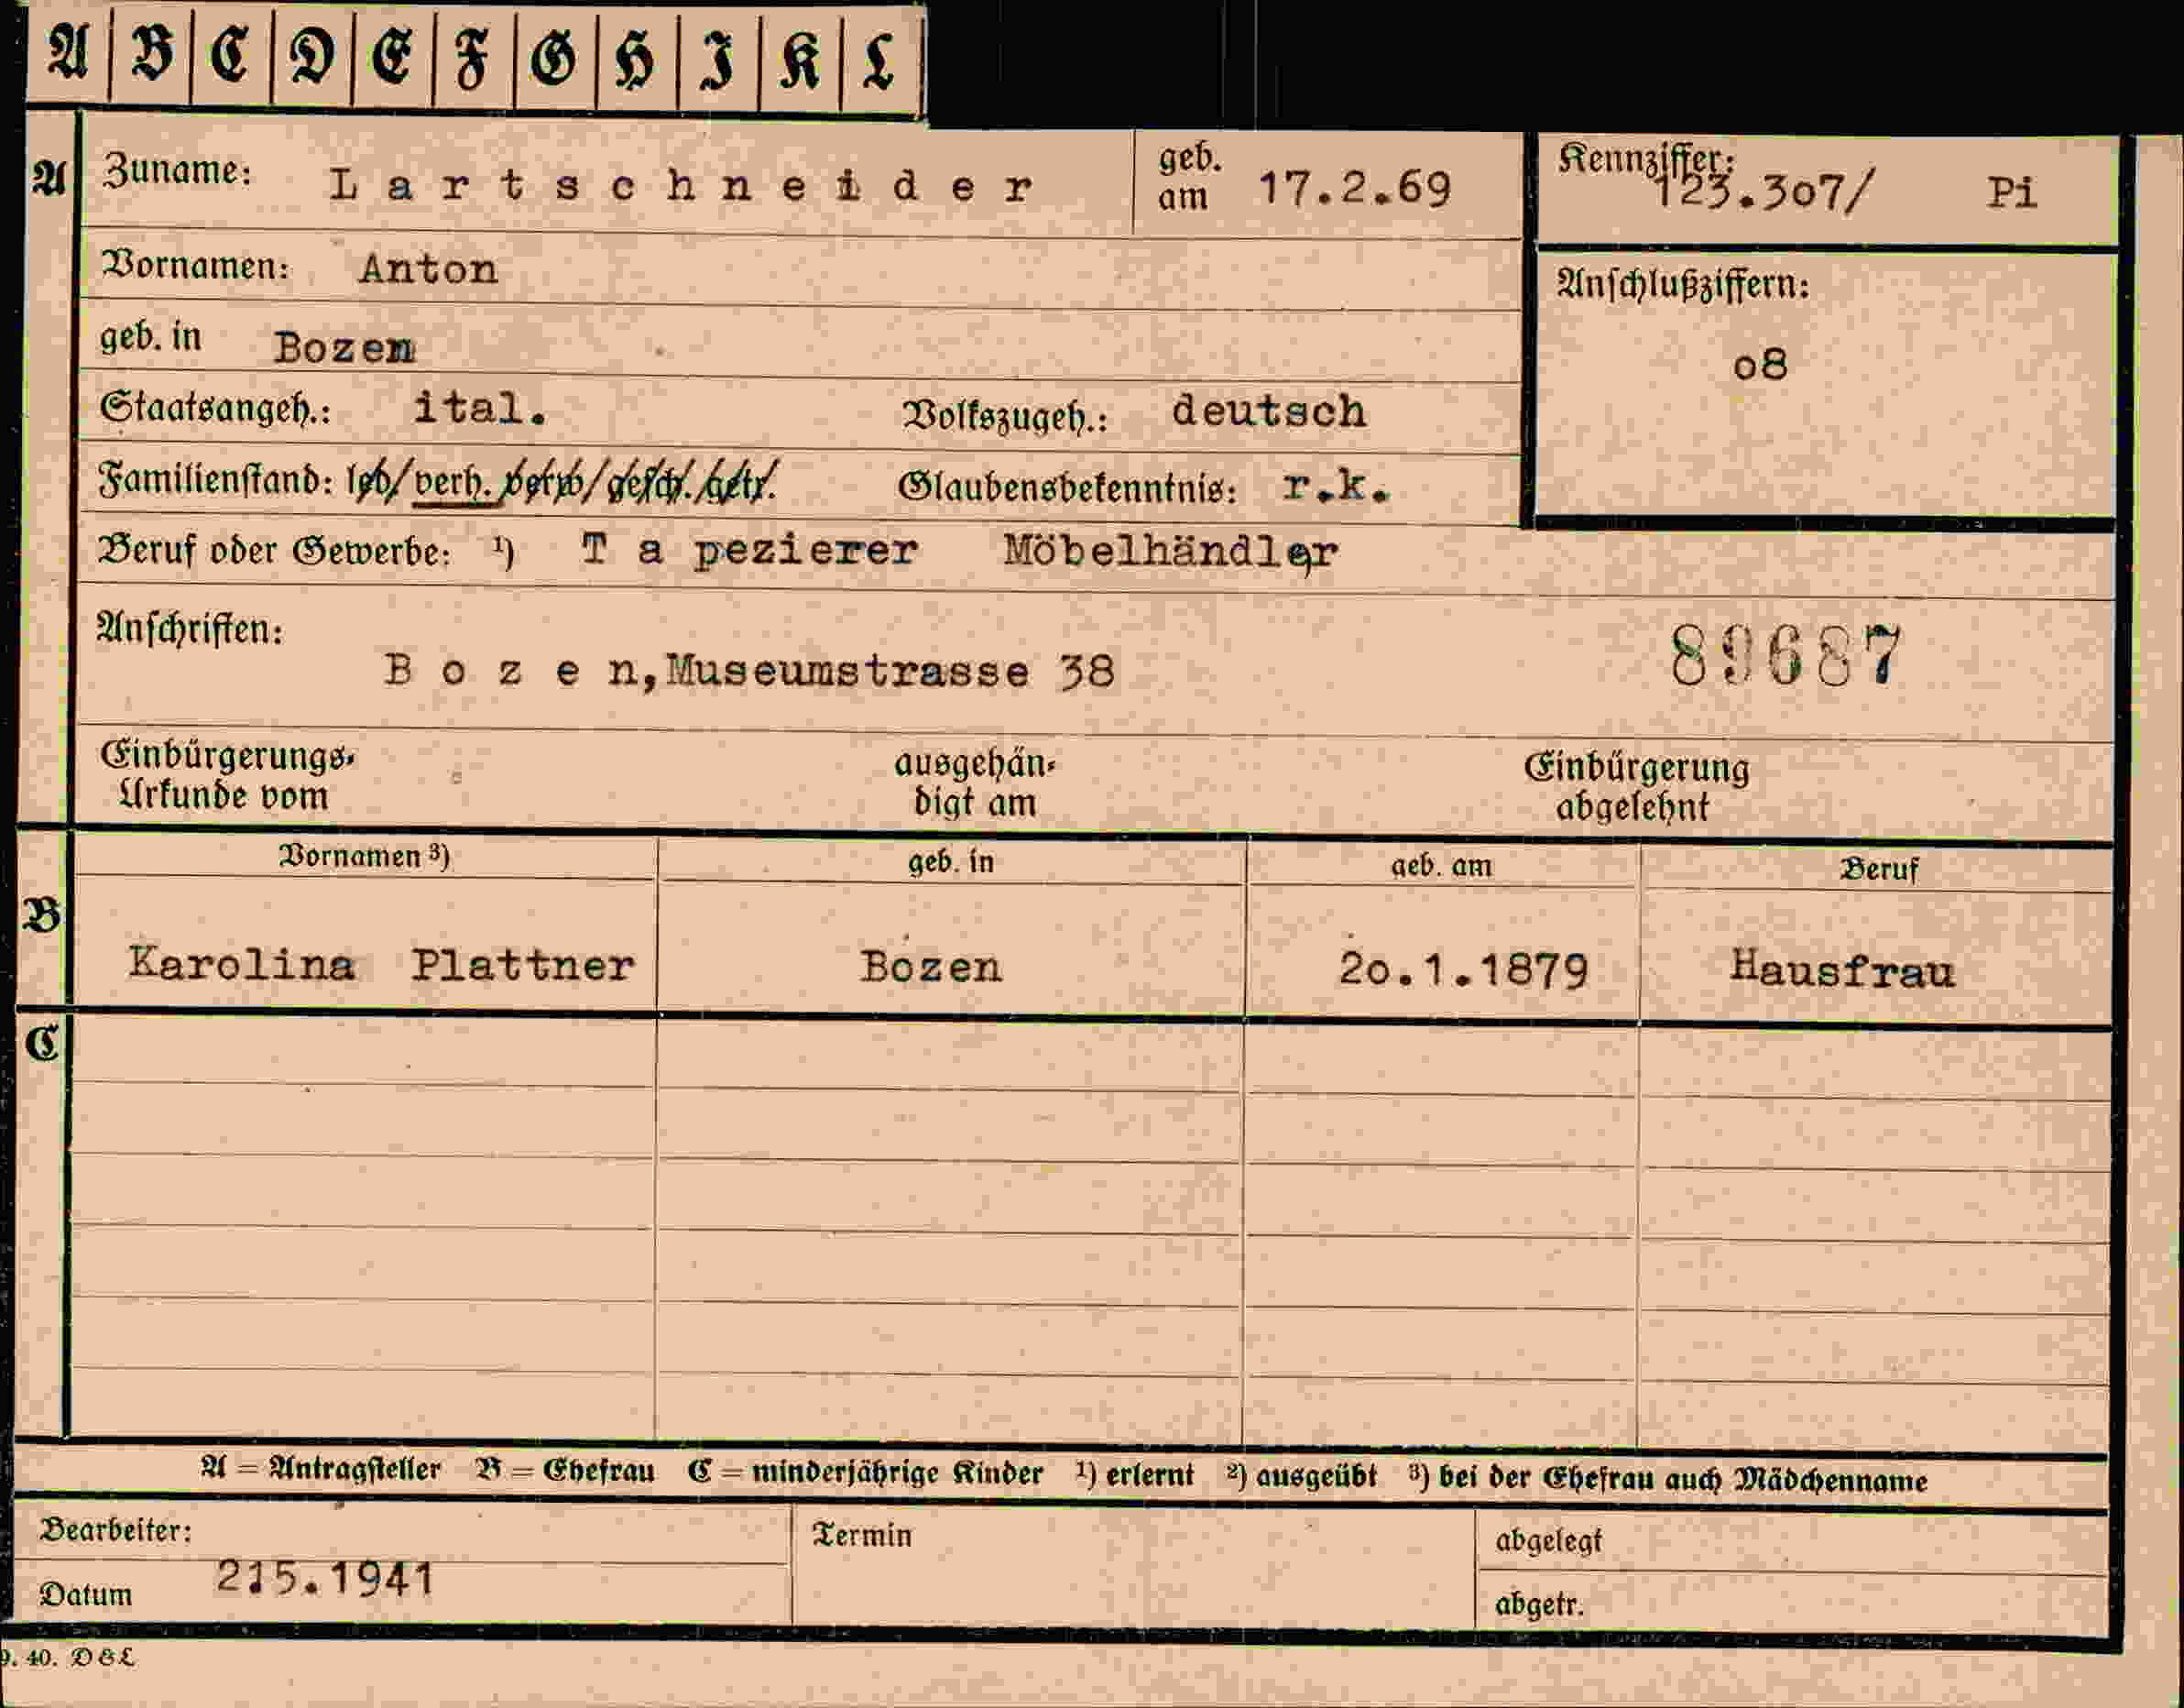 A B C D E F G H I K L
A Zuname: Lartschneider geb. am 17.2.69 Kennziffer: 123.307/ Pi
Vornamen: Anton
Anschlußziffern: o8
geb. in Bozen
Staatsangeh.: ital. Volkszugeh.: deutsch
Familienstand: led/verh. verw/gesch./getr. Glaubensbekenntnis: r.k.
Beruf oder Gewerbe: ¹) T a pezierer Möbelhändler
Anschriften: B o z e n,Museumstrasse 38 89687
Einbürgerungs-Urkunde vom ausgehän-digt am Einbürgerung abgelehnt
B Vornamen ³) geb. in geb. am Beruf
Karolina Plattner Bozen 2o.1.1879 Hausfrau
C
A = Antragsteller B = Ehefrau C = minderjährige Kinder ¹) erlernt ²) ausgeübt ³) bei der Ehefrau auch Mädchenname
Bearbeiter: Termin abgelegt
Datum 215.1941 abgetr.
9. 40. D&L